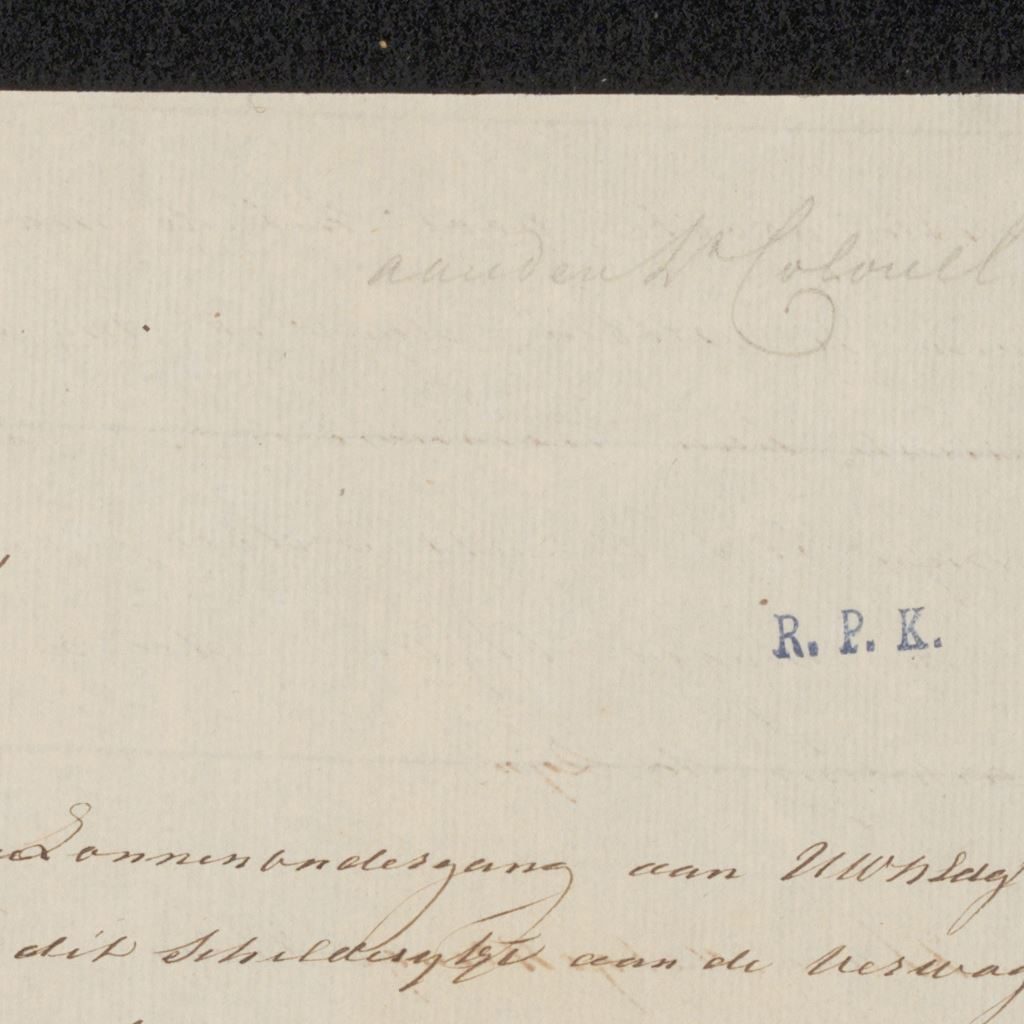 aan den Hr Colonell
R. P. K.
Zonnenondergang aan UWhEdg
dit schilderytje aan de verwag